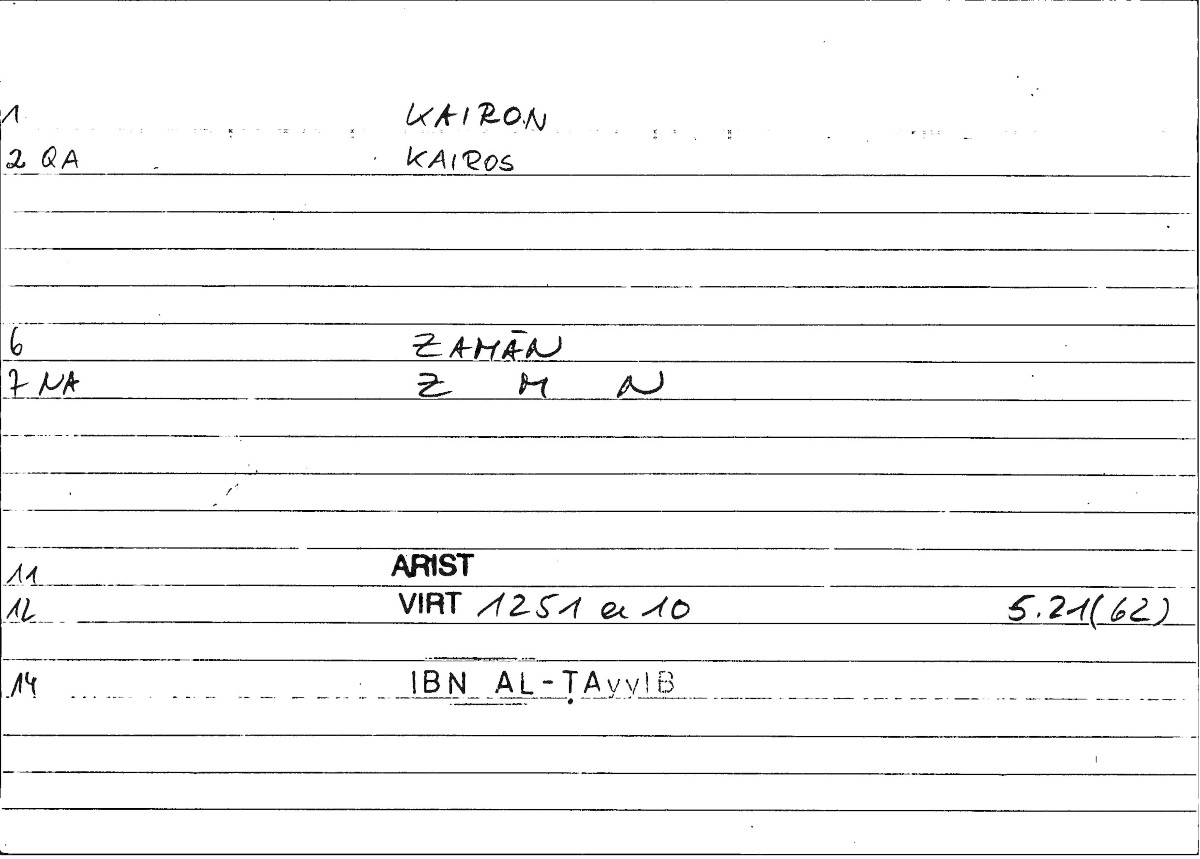 1 KAIRON
2 QA KAIROS
6 ZAMĀN
7 NA Z M N
11 ARIST
12 VIRT 1251 a 10 5.21(62)
14 IBN AL-ṬAyyIB